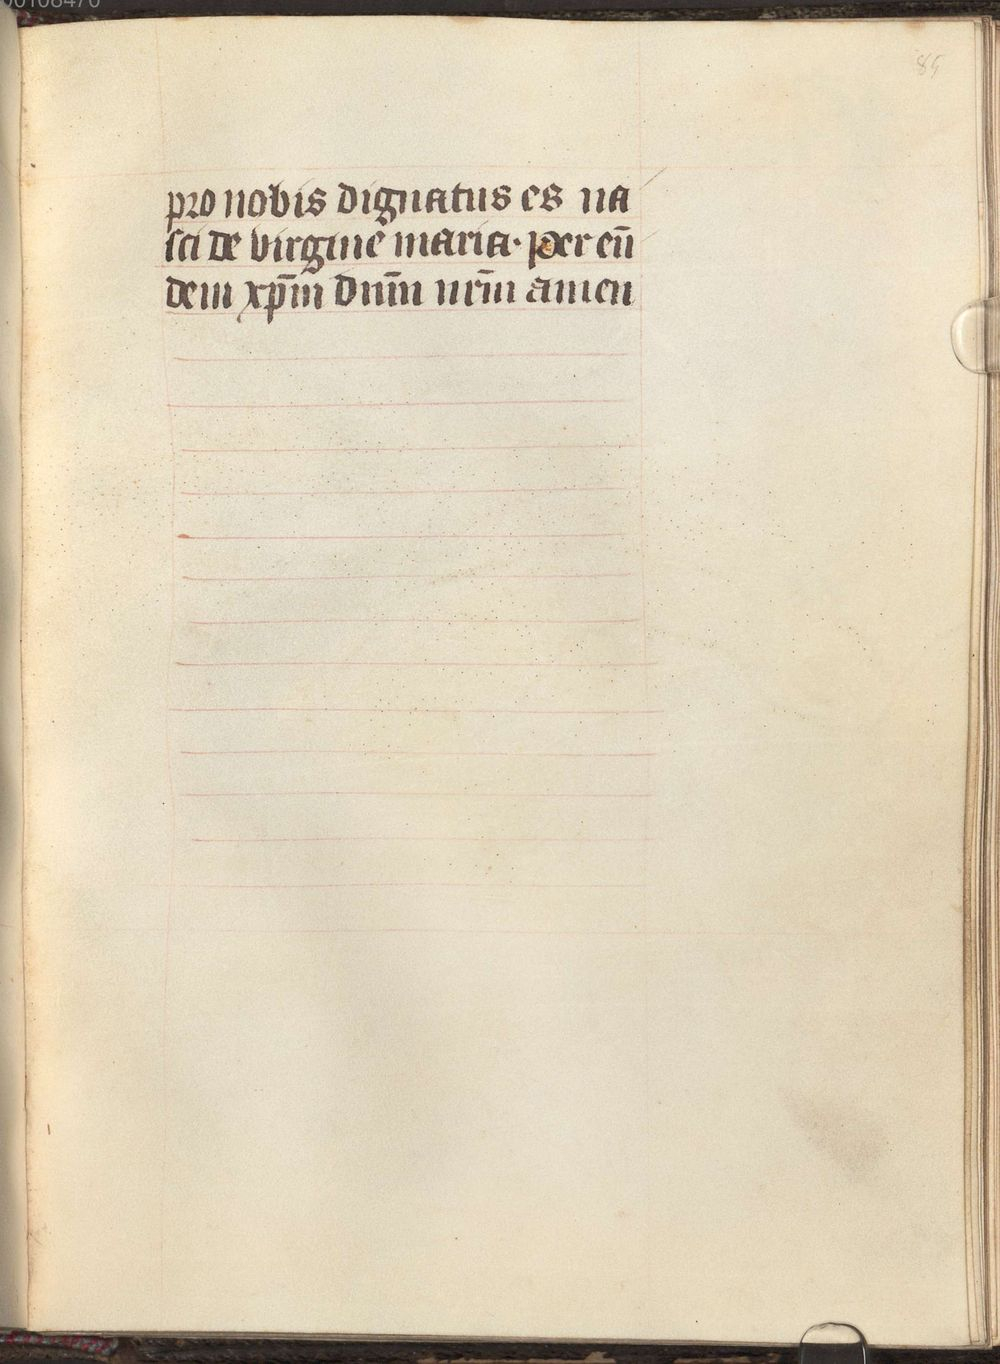 85
pro nobis dignatus es na
sci de virgine maria· Per eu̅
dem xp̅m dnm̅ nrm̅ amen